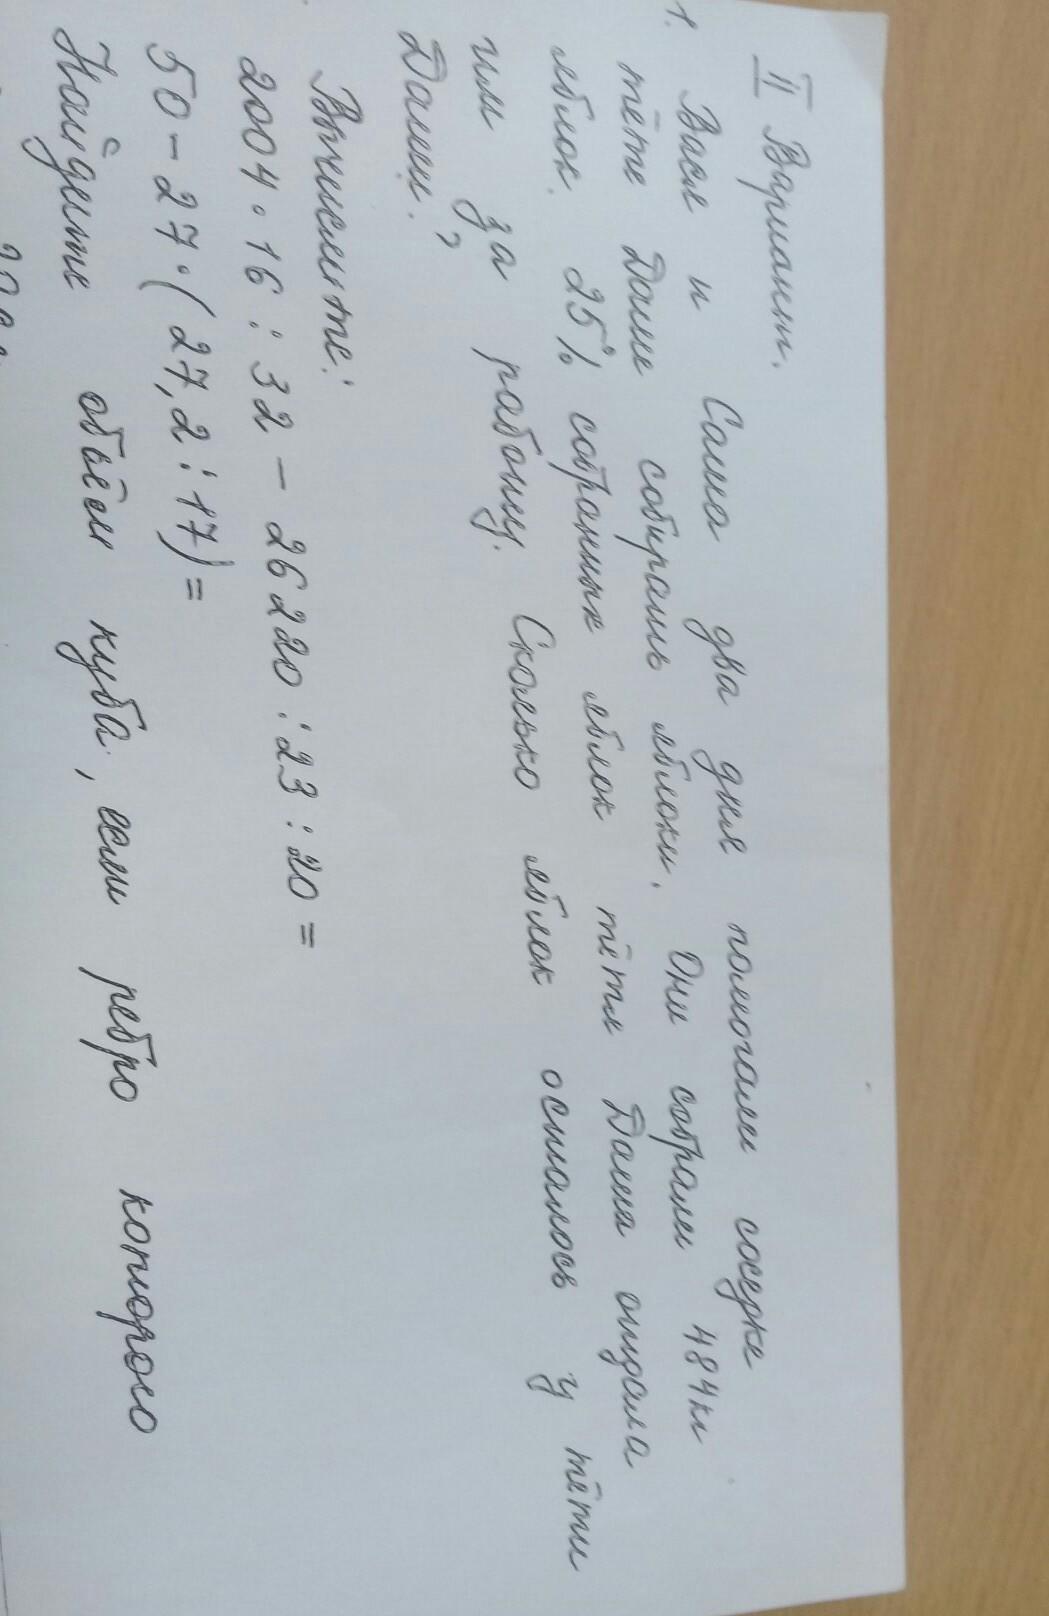 II Вариант.
1. Вася и Саша два дня помогали соседке
тёте Даше собирать яблоки. Они собрали 484кг
яблок. 25% собранных яблок тётя Даша отдала
им за работу. Сколько яблок осталось у тёти
Даши?
Вычислите:
2004 · 16 : 32 - 26220 : 23 : 20 =
50 - 27 · (27,2 : 17) =
Найдите объём куба, если ребро которого